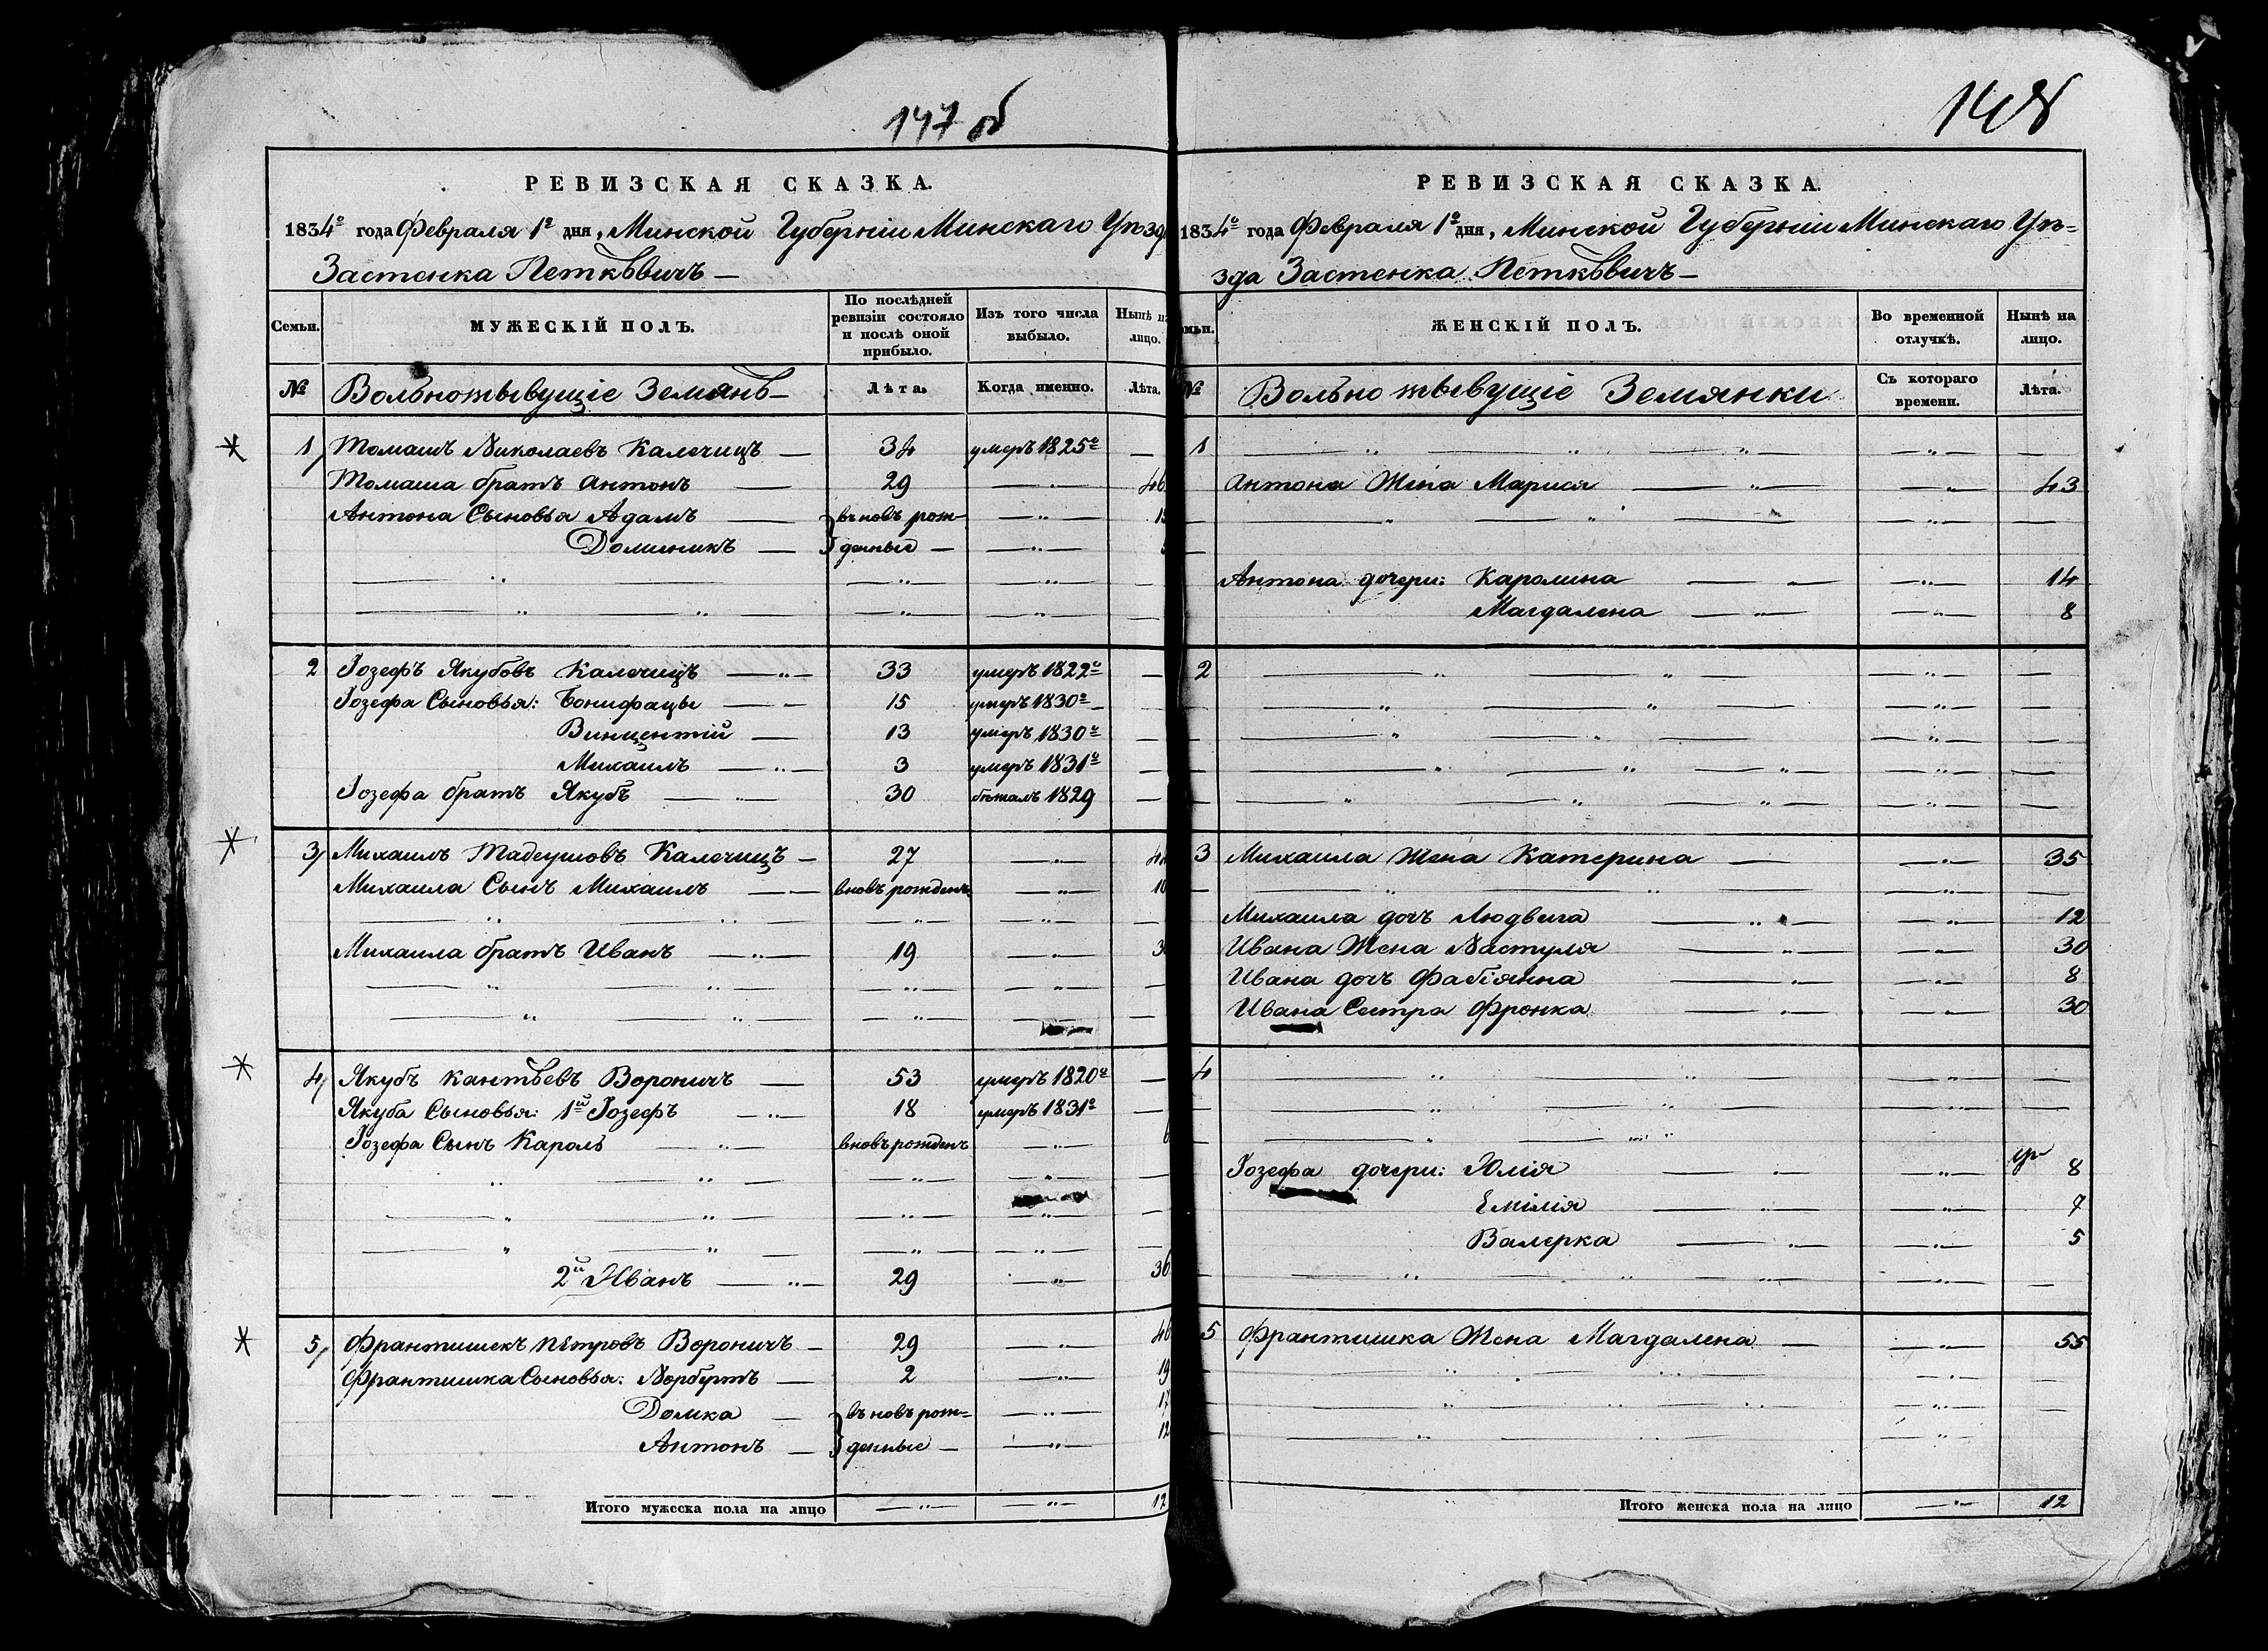 147 об
РЕВИЗСКАЯ СКАЗКА.
1834го года Февраля 1го дня, Минской Губерніи Минскаго Уѣзд
Застенка Петковичъ —
Семьи. МУЖЕСКІЙ ПОЛЪ. По послѣдней ревизіи состояло и послѣ оной прибыло. Изъ того числа выбыло. Нынѣ на лицо.
№ Вольноживущіе Земянѣ — Лѣта. Когда именно. Лѣта.
1 Томашъ Николаевъ Калечицъ — 34 умеръ 1825го —
Томаша братъ Антонъ — 29 — 46
Антона Сыновья Адамъ — въновь рож-
Доминикъ — денные —
2 Іозефъ Якубовъ Калечицъ — 33 умеръ 1822го —
Іозефа Сыновья: Бонифацы — 15 умеръ 1830го —
Винцентій — 13 умеръ 1830го —
Михаилъ — 3 умеръ 1831го —
Іозефа братъ Якубъ — 30 бѣжалъ 1829 —
3 Михаилъ Тадеушовъ Калечицъ — 27 —
Михаила Сынъ Михаилъ — вновь рожденъ —
Михаила братъ Иванъ — 19 —
4 Якубъ Кантыевъ Вороничъ — 53 умеръ 1820го —
Якуба Сыновья: 1й Іозефъ — 18 умеръ 1831го —
Іозефа Сынъ Кароль — вновь рожденъ —
2й Иванъ — 29 — 36
5 Франтишекъ Петровъ Вороничъ — 29 — 46
Франтишка Сыновья: Норбертъ — 2 — 19
Домка — въновь рож= — 17
Антонъ — денные — — 12
Итого мужеска пола на лицо — — 12
148
РЕВИЗСКАЯ СКАЗКА.
1834го года Февраля 1го дня, Минской Губерніи Минскаго Уѣ=
зда Застенка Петковичъ —
ЖЕНСКІЙ ПОЛЪ. Во временной отлучкѣ. Нынѣ на лицо.
№ Вольноживущіе Землянки Съ котораго времени. Лѣта.
1
Антона Жена Марися — 43
Антона дочери: Каролина — 14
Магдалена — 8
2
3 Михаила Жена Катерина — 35
Михаила дочь Людвига — 12
Ивана Жена Настуля — 30
Ивана дочь Фабіянна — 8
Ивана Сестра Фронка — 30
4
Іозефа дочери: Юлія — 8
Емілія — 7
Валерка — 5
5 Франтишка Жена Магдалена — 55
Итого женска пола на лицо — 12